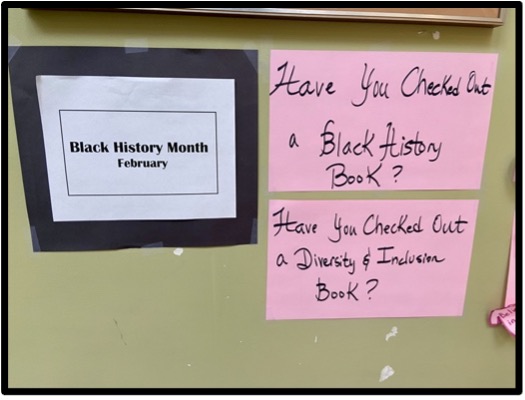 Black History Month
February
Have You Checked Out
a Black History
Book?
Have You Checked Out
a Diversity & Inclusion
Book?